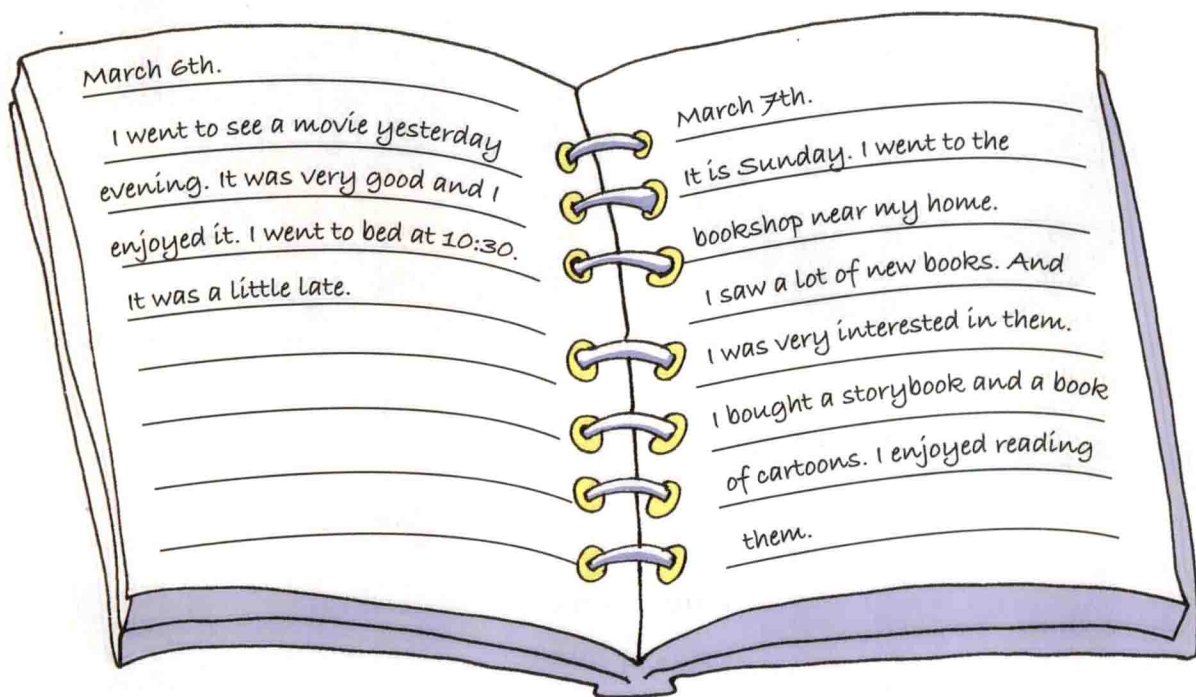 March 6th.
I went to see a movie yesterday
evening. It was very good and I
enjoyed it. I went to bed at 10:30.
It was a little late.
March 7th.
It is Sunday. I went to the
bookshop near my home.
I saw a lot of new books. And
I was very interested in them.
I bought a storybook and a book
of cartoons. I enjoyed reading
them.